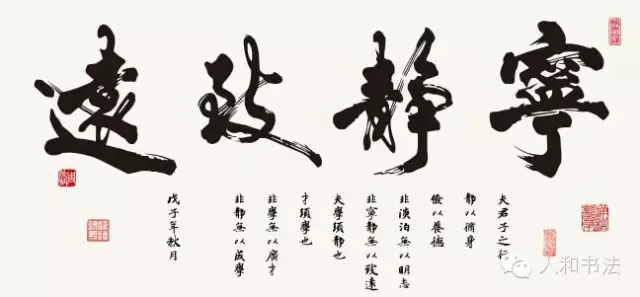 寧靜致遠
夫君子之行
靜以脩身
儉以養德
非淡泊無以明志
非寧靜無以致遠
夫學須靜也
才須學也
非學無以廣才
非靜無以成學
戊子年秋月
人和书法